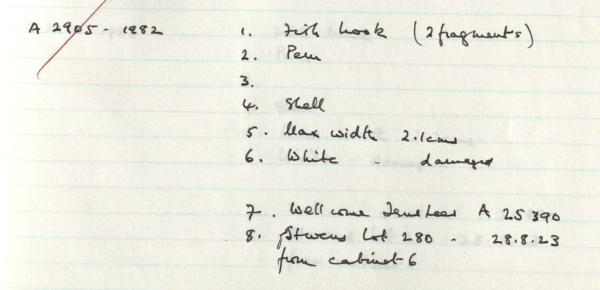 A 2905 - 1982 1. Fish hook (2 fragments)
2. Peru
3.
4. Shell
5. Max width 2.1cms
6. White - damaged
7. Wellcome Trustees A 25390
8. Stevens Lot 280 - 28.8.23
from cabinet 6